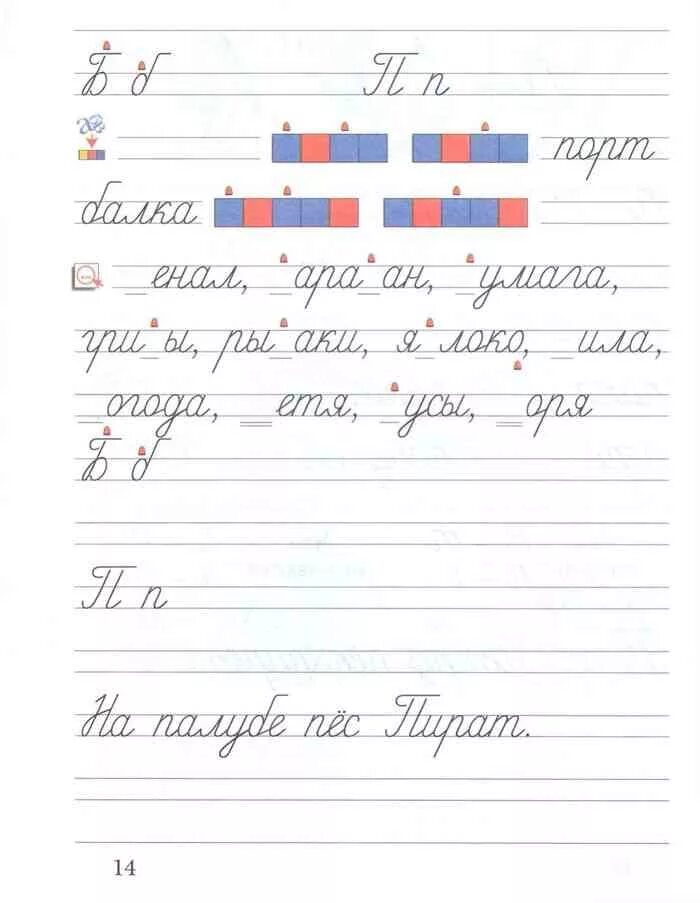 Б б П п
порт
балка
_енал, _ара_ан, _умага,
гри_ы, ры_аки, я_локо, _ила,
_огода, _етя, _усы, _оря
Б б
П п
На палубе пёс Пират.
14